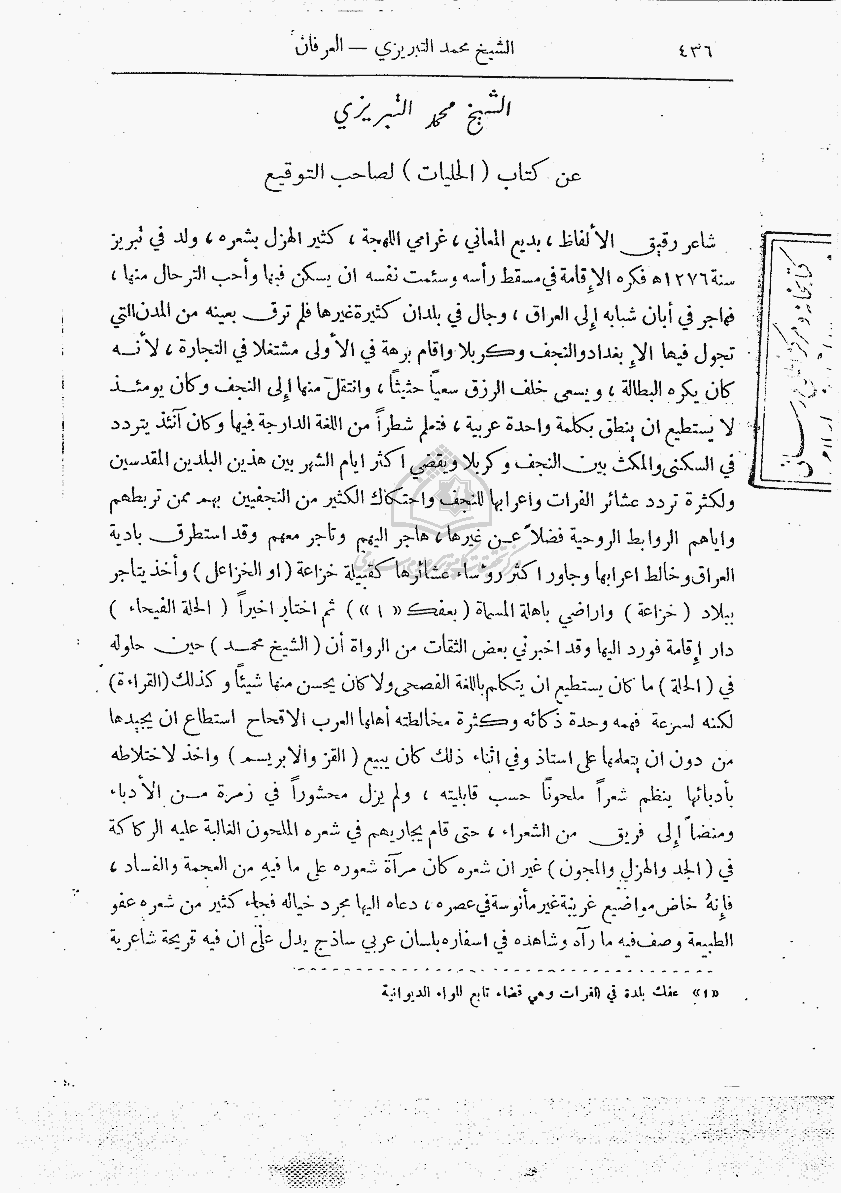 ٤٣٦
الشيخ محمد التبريزي — العرفان
الشيخ محمد التبريزي
عن كتاب ( الحليات ) لصاحب التوقيع
شاعر رقيق الألفاظ ، بديع المعاني ، غرامي اللهجة ، كثير الهزل بشعره ، ولد في تبريز
سنة ١٢٧٦ه فكره الإقامة في مسقط رأسه وسئمت نفسه ان يسكن فيها وأحب الترحال منها ،
فهاجر في أبان شبابه إلى العراق ، وجال في بلدان كثيرة غيرها فلم ترق بعينه من المدن التي
تجول فيها الا بغداد والنجف وكربلا واقام برهة في الأولى مشتغلا في التجارة ، لأنه
كان يكره البطالة ، ويسعى خلف الرزق سعياً حثيثاً ، وانتقل منها إلى النجف وكان يومئذ
لا يستطيع ان ينطق بكلمة واحدة عربية ، فتعلم شطراً من اللغة الدارجة فيها وكان آنئذ يتردد
في السكنى والمكث بين النجف وكربلا ويقضي اكثر ايام الشهر بين هذين البلدين المقدسين
ولكثرة تردد عشائر الفرات واعرابها للنجف واحتكاك الكثير من النجفيين بهم ممن تربطهم
واياهم الروابط الروحية فضلاً عن غيرها ، هاجر اليهم وتاجر معهم وقد استطرق بادية
العراق وخالط اعرابها وجاور اكثر رؤساء عشائرها كقبيلة خزاعة ( او الخزاعل ) وأخذ يتاجر
ببلاد ( خزاعة ) واراضي باهلة المسماة ( بعفك « ١ » ) ثم اختار اخيراً ( الحلة الفيحاء )
دار إقامة فورد اليها وقد اخبرني بعض الثقات من الرواة أن ( الشيخ محمد ) حين حلوله
في ( الحلة ) ما كان يستطيع ان يتكلم باللغة الفصحى ولا كان يحسن منها شيئاً و كذلك ( القراءة )
لكنه لسرعة فهمه وحدة ذكائه وكثرة مخالطته أهلها العرب الاقحاح استطاع ان يجيدها
من دون ان يتعلمها على استاذ وفي اثناء ذلك كان يبيع ( القز والابريسم ) واخذ لاختلاطه
بأدبائها ينظم شعراً ملحوناً حسب قابليته ، ولم يزل محشوراً في زمرة من الأدباء
ومنضماً إلى فريق من الشعراء ، حتى قام يجاريهم في شعره الملحون الغالبة عليه الركاكة
في ( الجد والهزل والمجون ) غير ان شعره كان مرآة شعوره على ما فيه من العجمة والفساد ،
فإنه خاض مواضيع غريبة غير مأنوسة في عصره ، دعاه اليها مجرد خياله فجاء كثير من شعره عفو
الطبيعة وصف فيه ما رآه وشاهده في اسفاره بلسان عربي ساذج يدل على ان فيه قريحة شاعرية
«١» عفك بلدة في الفرات وهي قضاء تابع للواء الديوانية